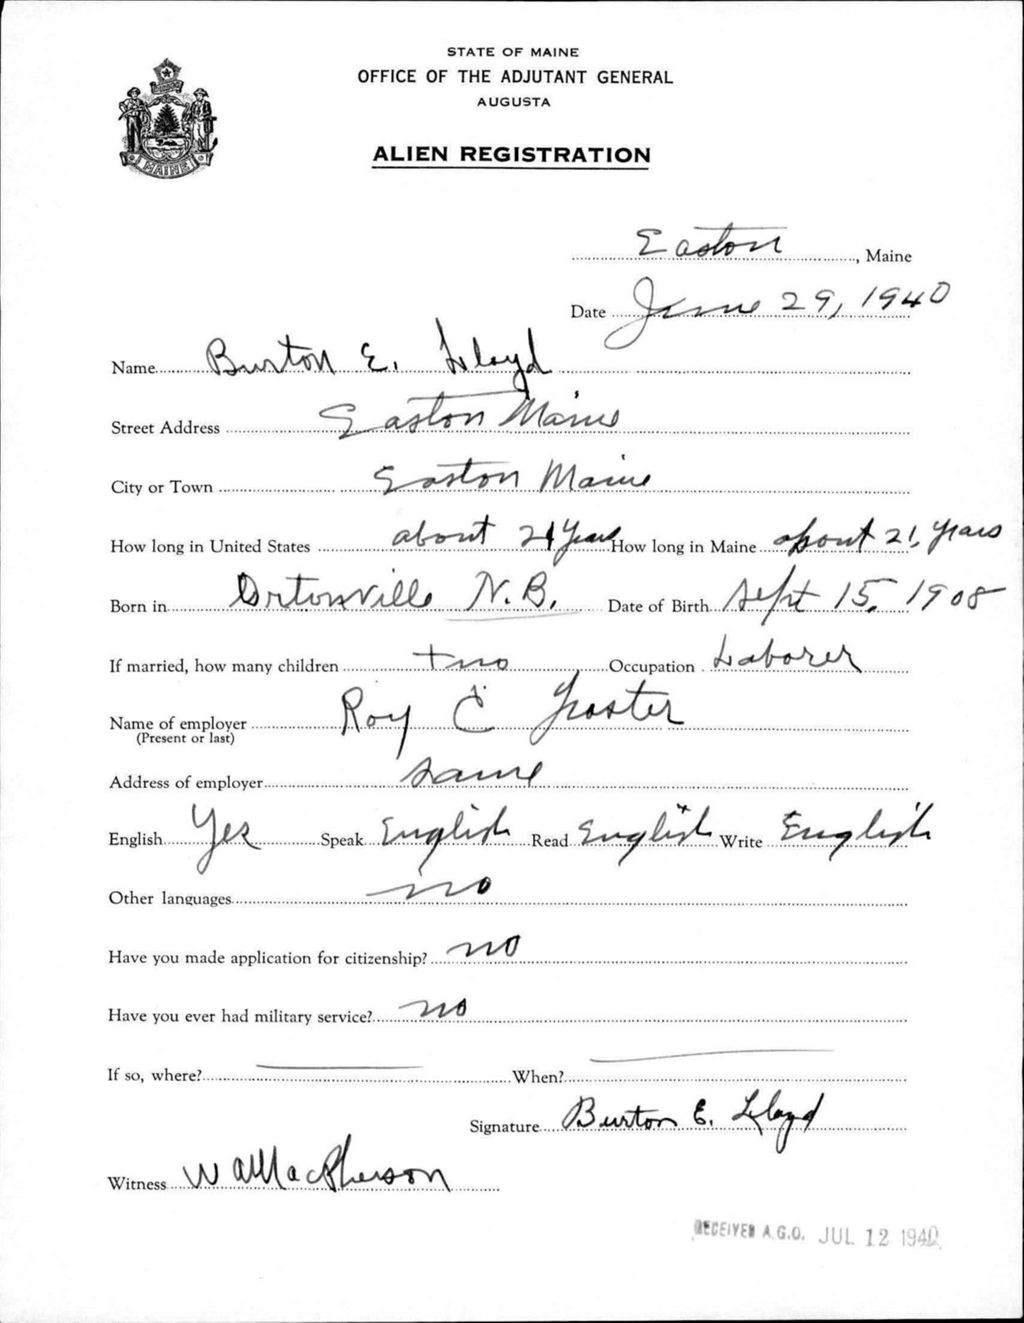 STATE OF MAINE
OFFICE OF THE ADJUTANT GENERAL
AUGUSTA
ALIEN REGISTRATION
MAINE
Easton, Maine
Date June 29, 1940
Name Burton E. Lloyd
Street Address Easton Maine
City or Town Easton Maine
How long in United States about 21 Years How long in Maine about 21 years
Born in Ortonville N.B. Date of Birth Sept 15, 1908
If married, how many children two Occupation Laborer
Name of employer Roy C Foster
(Present or last)
Address of employer same
English Yes Speak English Read English Write English
Other languages no
Have you made application for citizenship? no
Have you ever had military service? no
If so, where? When?
Signature Burton E. Lloyd
Witness W A MacPherson
RECEIVED A.G.O. JUL 12 1940